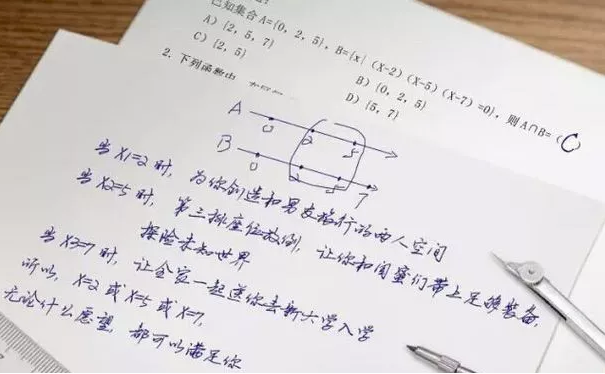 已知集合 A={0, 2, 5}, B={x| (X-2) (X-5) (X-7) =0}, 则 A∩B= (C)
A) {2, 5, 7}
B) {0, 2, 5}
C) {2, 5}
D) {5, 7}
2. 下列函数中
A 0 2 5
B 0 2 5 7
当 X1=2 时, 为你创造和男友旅行的两人空间
当 X2=5 时, 第三排座位放倒, 让你和闺蜜们带上足够装备,
探险未知世界
当 X3=7 时, 让全家一起送你去新大学入学
所以, X=2 或 X=5 或 X=7,
无论什么愿望, 都可以满足你